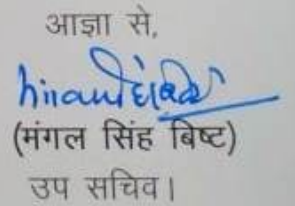 आज्ञा से,
(मंगल सिंह बिष्ट)
उप सचिव।